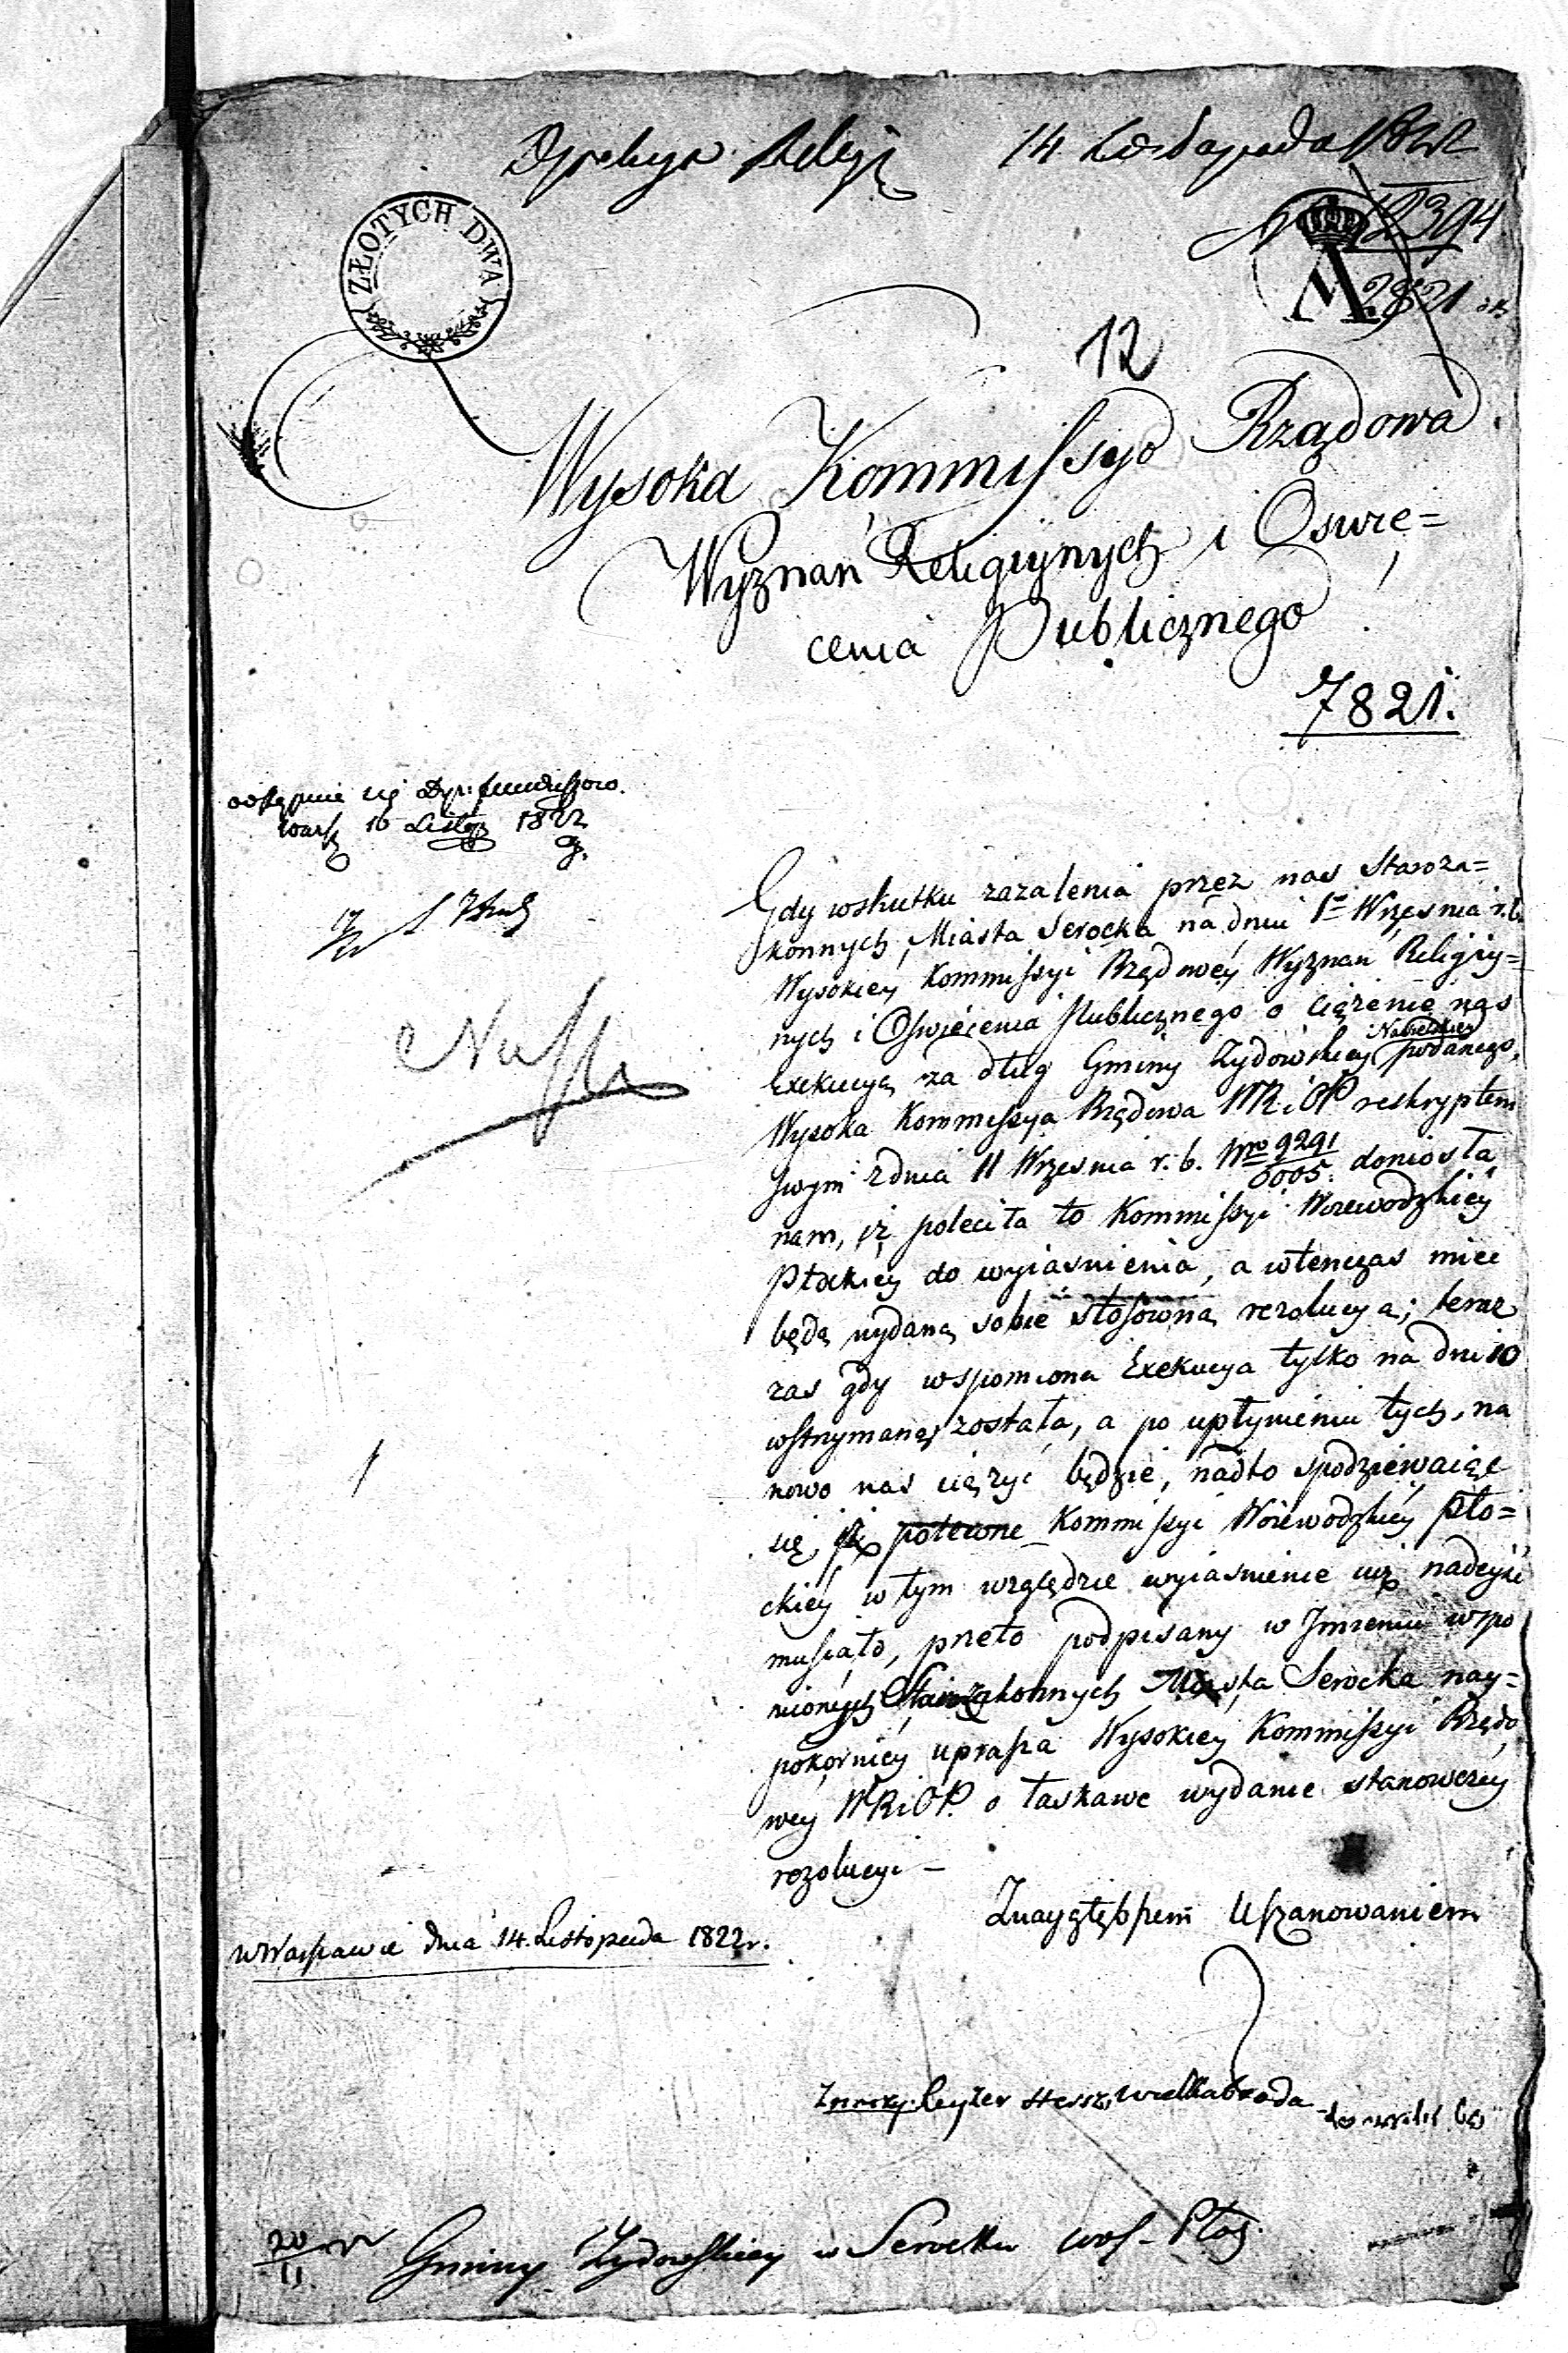 Dyrekcya Religij 14 Listopada 1822
ZŁOTYCH DWA
N 12394
2821
12
Wysoka Kommissyo Rządowa
Wyznań Religiynych i Oswie=
cenia Publicznego
7821.
odstępuie się Dyr: funduszow.
Warsz 16 Listop 1822
Gdy wskutku zazalenia przez nas Staroza=
konnych, Miasta Serocka na dniu 1º Września r.b.
Wysokiey Kommissyi Rządowey Wyznań Religiy=
nych i Oswiecenia Publicznego o ciążenie nas
Exekucyą za dług Gminy Zydowskiey Nasielskiey podanego,
Wysoka Kommissya Rządowa WR i OP reskryptem
swym z dnia 11 Wrzesnia r. b. Nro 9291/6005. doniosła
nam, iż poleciła to Kommissyi Woiewodzkiey
Płockiey do wyiasnienia, a wtenczas miec
będą wydaną sobie stosowną rezolucyą; teraz
zas gdy wspomiona Exekucya tylko na dni 10
wstrzymaną została, a po upłynieniu tych, na
nowo nas ciązyć będzie, nadto spodziewaiąc
się, iż polecone Kommissyi Woiewodzkiéy Pło=
ckiéy w tym względzie wyiasnienie iuż nadeyść
musiało, przeto podpisany w Imieniu wspo
mnionych Starozakonnych Miasta Serocka nay=
pokorniey uprasza Wysokiey Kommissyi Rządo
wey WRiOP. o łaskawe wydanie stanowczey
rezolucyi –
Z naygłębszem Uszanowaniem
w Warszawie dnia 14. Listopada 1822 r.
Leyzer Hersz Wielkabroda
20/11 Gminy Zydowskiey w Serocku woj. Płoc.